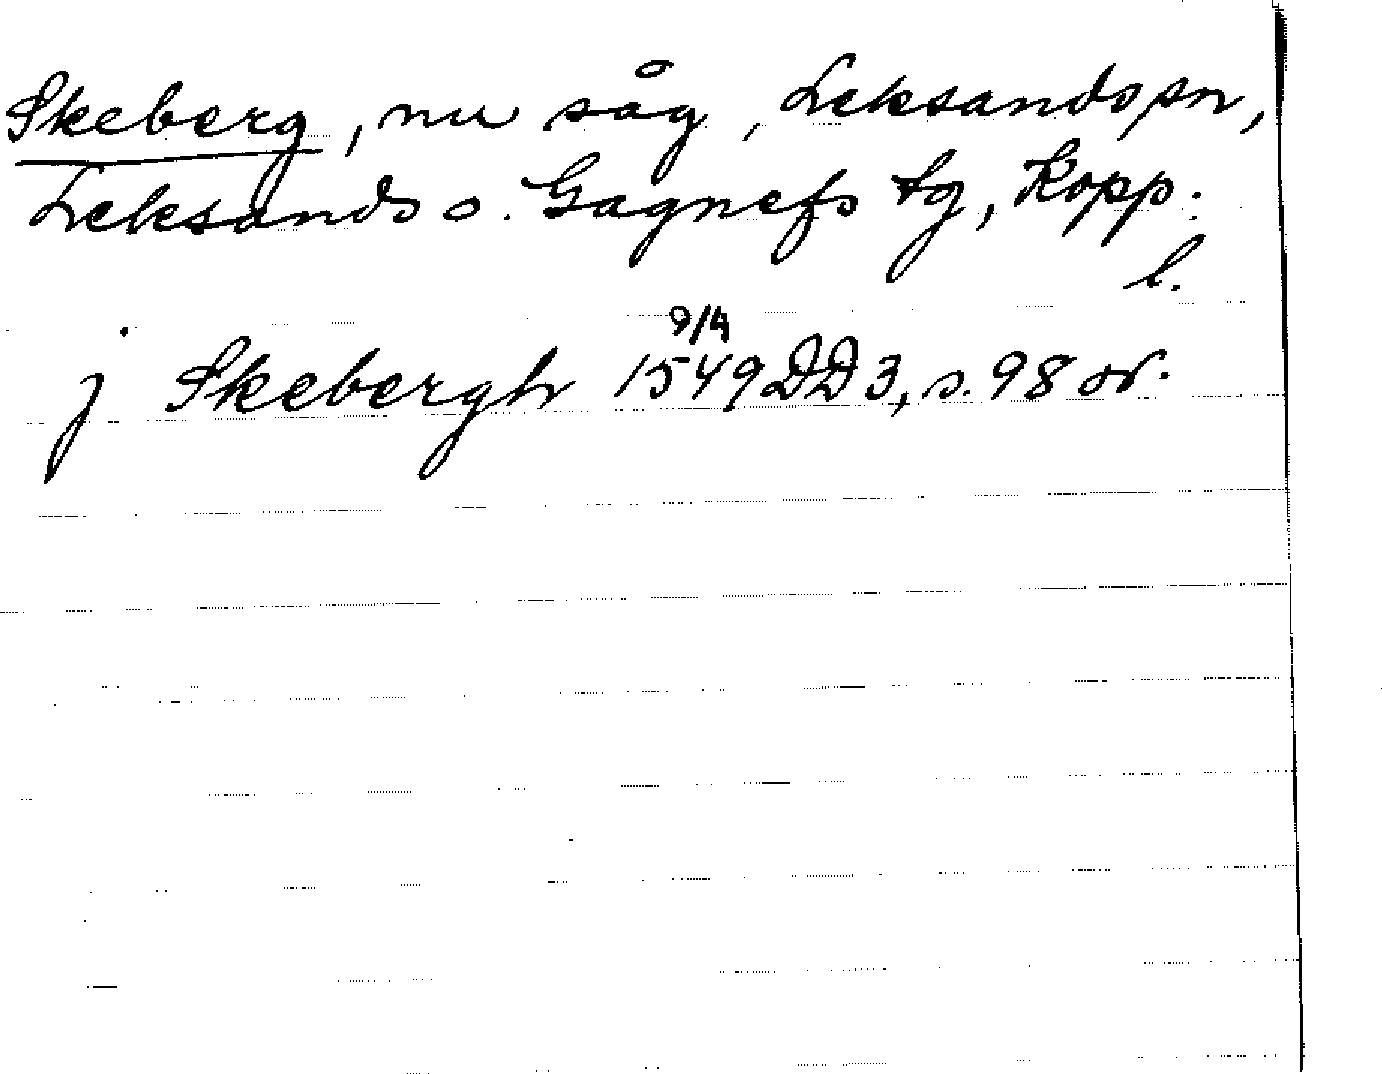 Skeberg, nu såg, Leksands sn,
Leksands o. Gagnefs tg, Kopp.
l.
9/4
j Skebergh 1549 DD 3, s. 98 or.